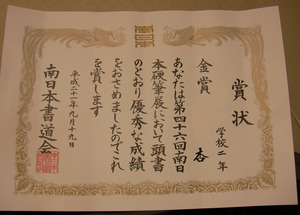 賞状
学校二年
金賞
あなたは第四十六回南日
本硬筆展において頭書
のとおり優秀な成績
をおさめましたのでこれ
を賞します
平成二十一年九月十九日
南日本書道会